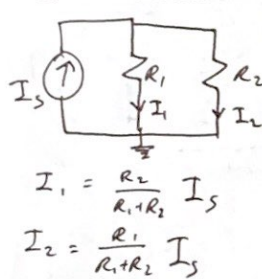 I_s R_1 I_1 R_2 I_2
I_1 = R_2 / (R_1+R_2) I_s
I_2 = R_1 / (R_1+R_2) I_s